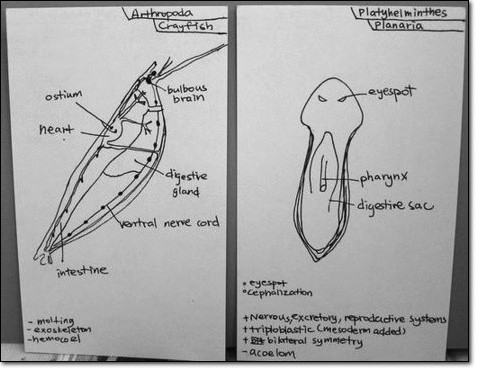 Arthropoda
Crayfish
ostium
bulbous
brain
heart
digestive
gland
ventral nerve cord
intestine
- molting
- exoskeleton
- hemocoel
Platyhelminthes
Planaria
eyespot
pharynx
digestive sac
• eyespot
• cephalization
+ Nervous, excretory, reproductive systems
+ triploblastic (mesoderm added)
+ bilateral symmetry
- acoelom